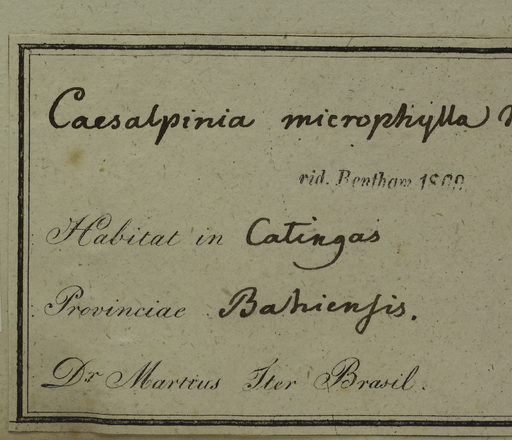 Caesalpinia microphylla
vid. Bentham
Habitat in Catingas
Provinciae Bahiensis.
Dr Martius Iter Brasil.